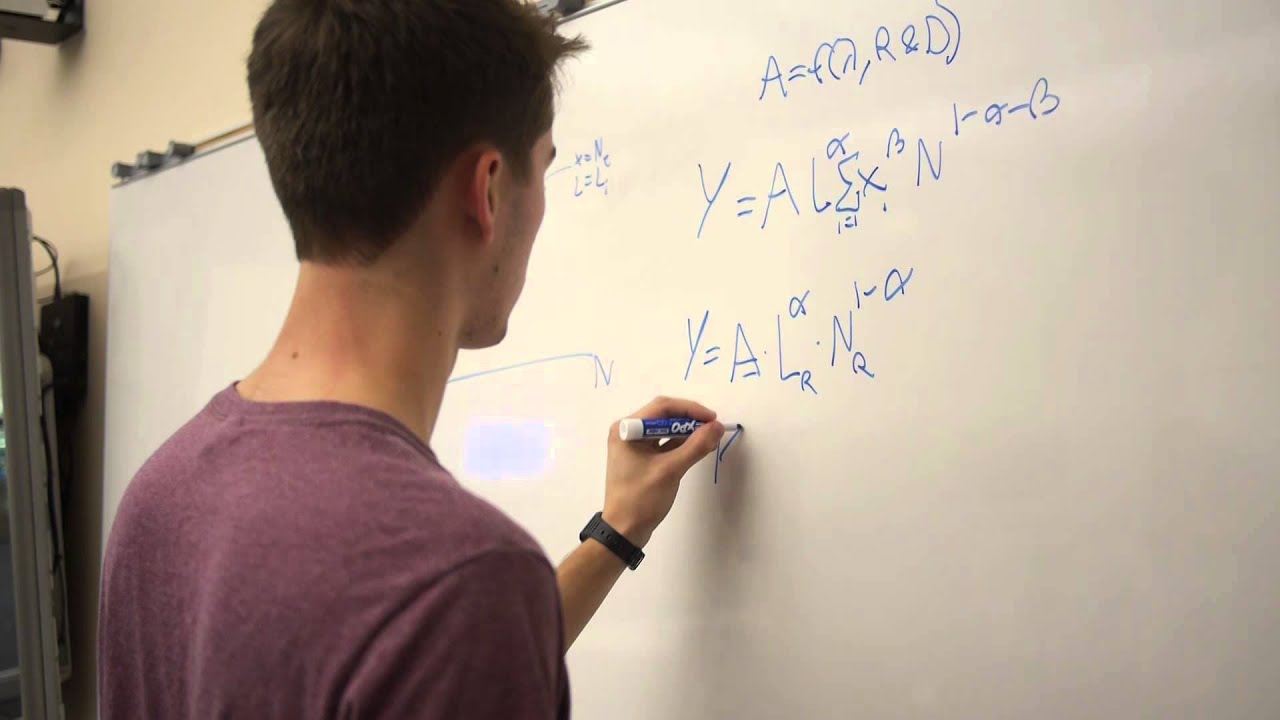 A=f(λ, R&D)
x=Nc
L=Li
Y=AL^α∑_{i=1}x_i^β N^{1-α-β}
Y=A·L_R^α·N_R^{1-α}
N
EXPO